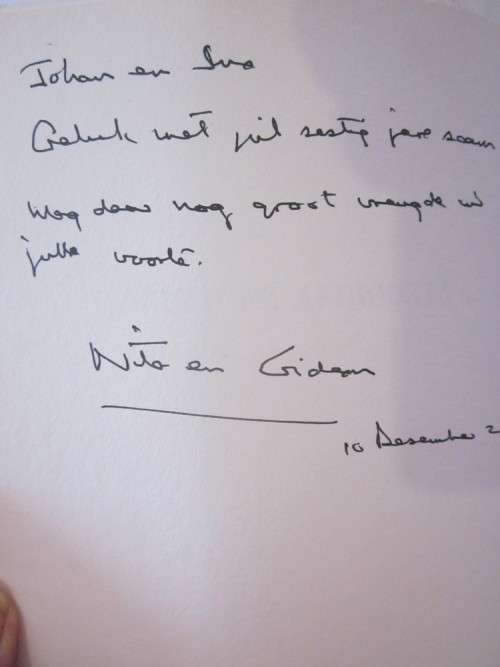 Johan en
Geluk met jul sestig jare saam
Mag daar nog groot vreugde vir
julle voorlê.
en Gideon
10 Desember 2